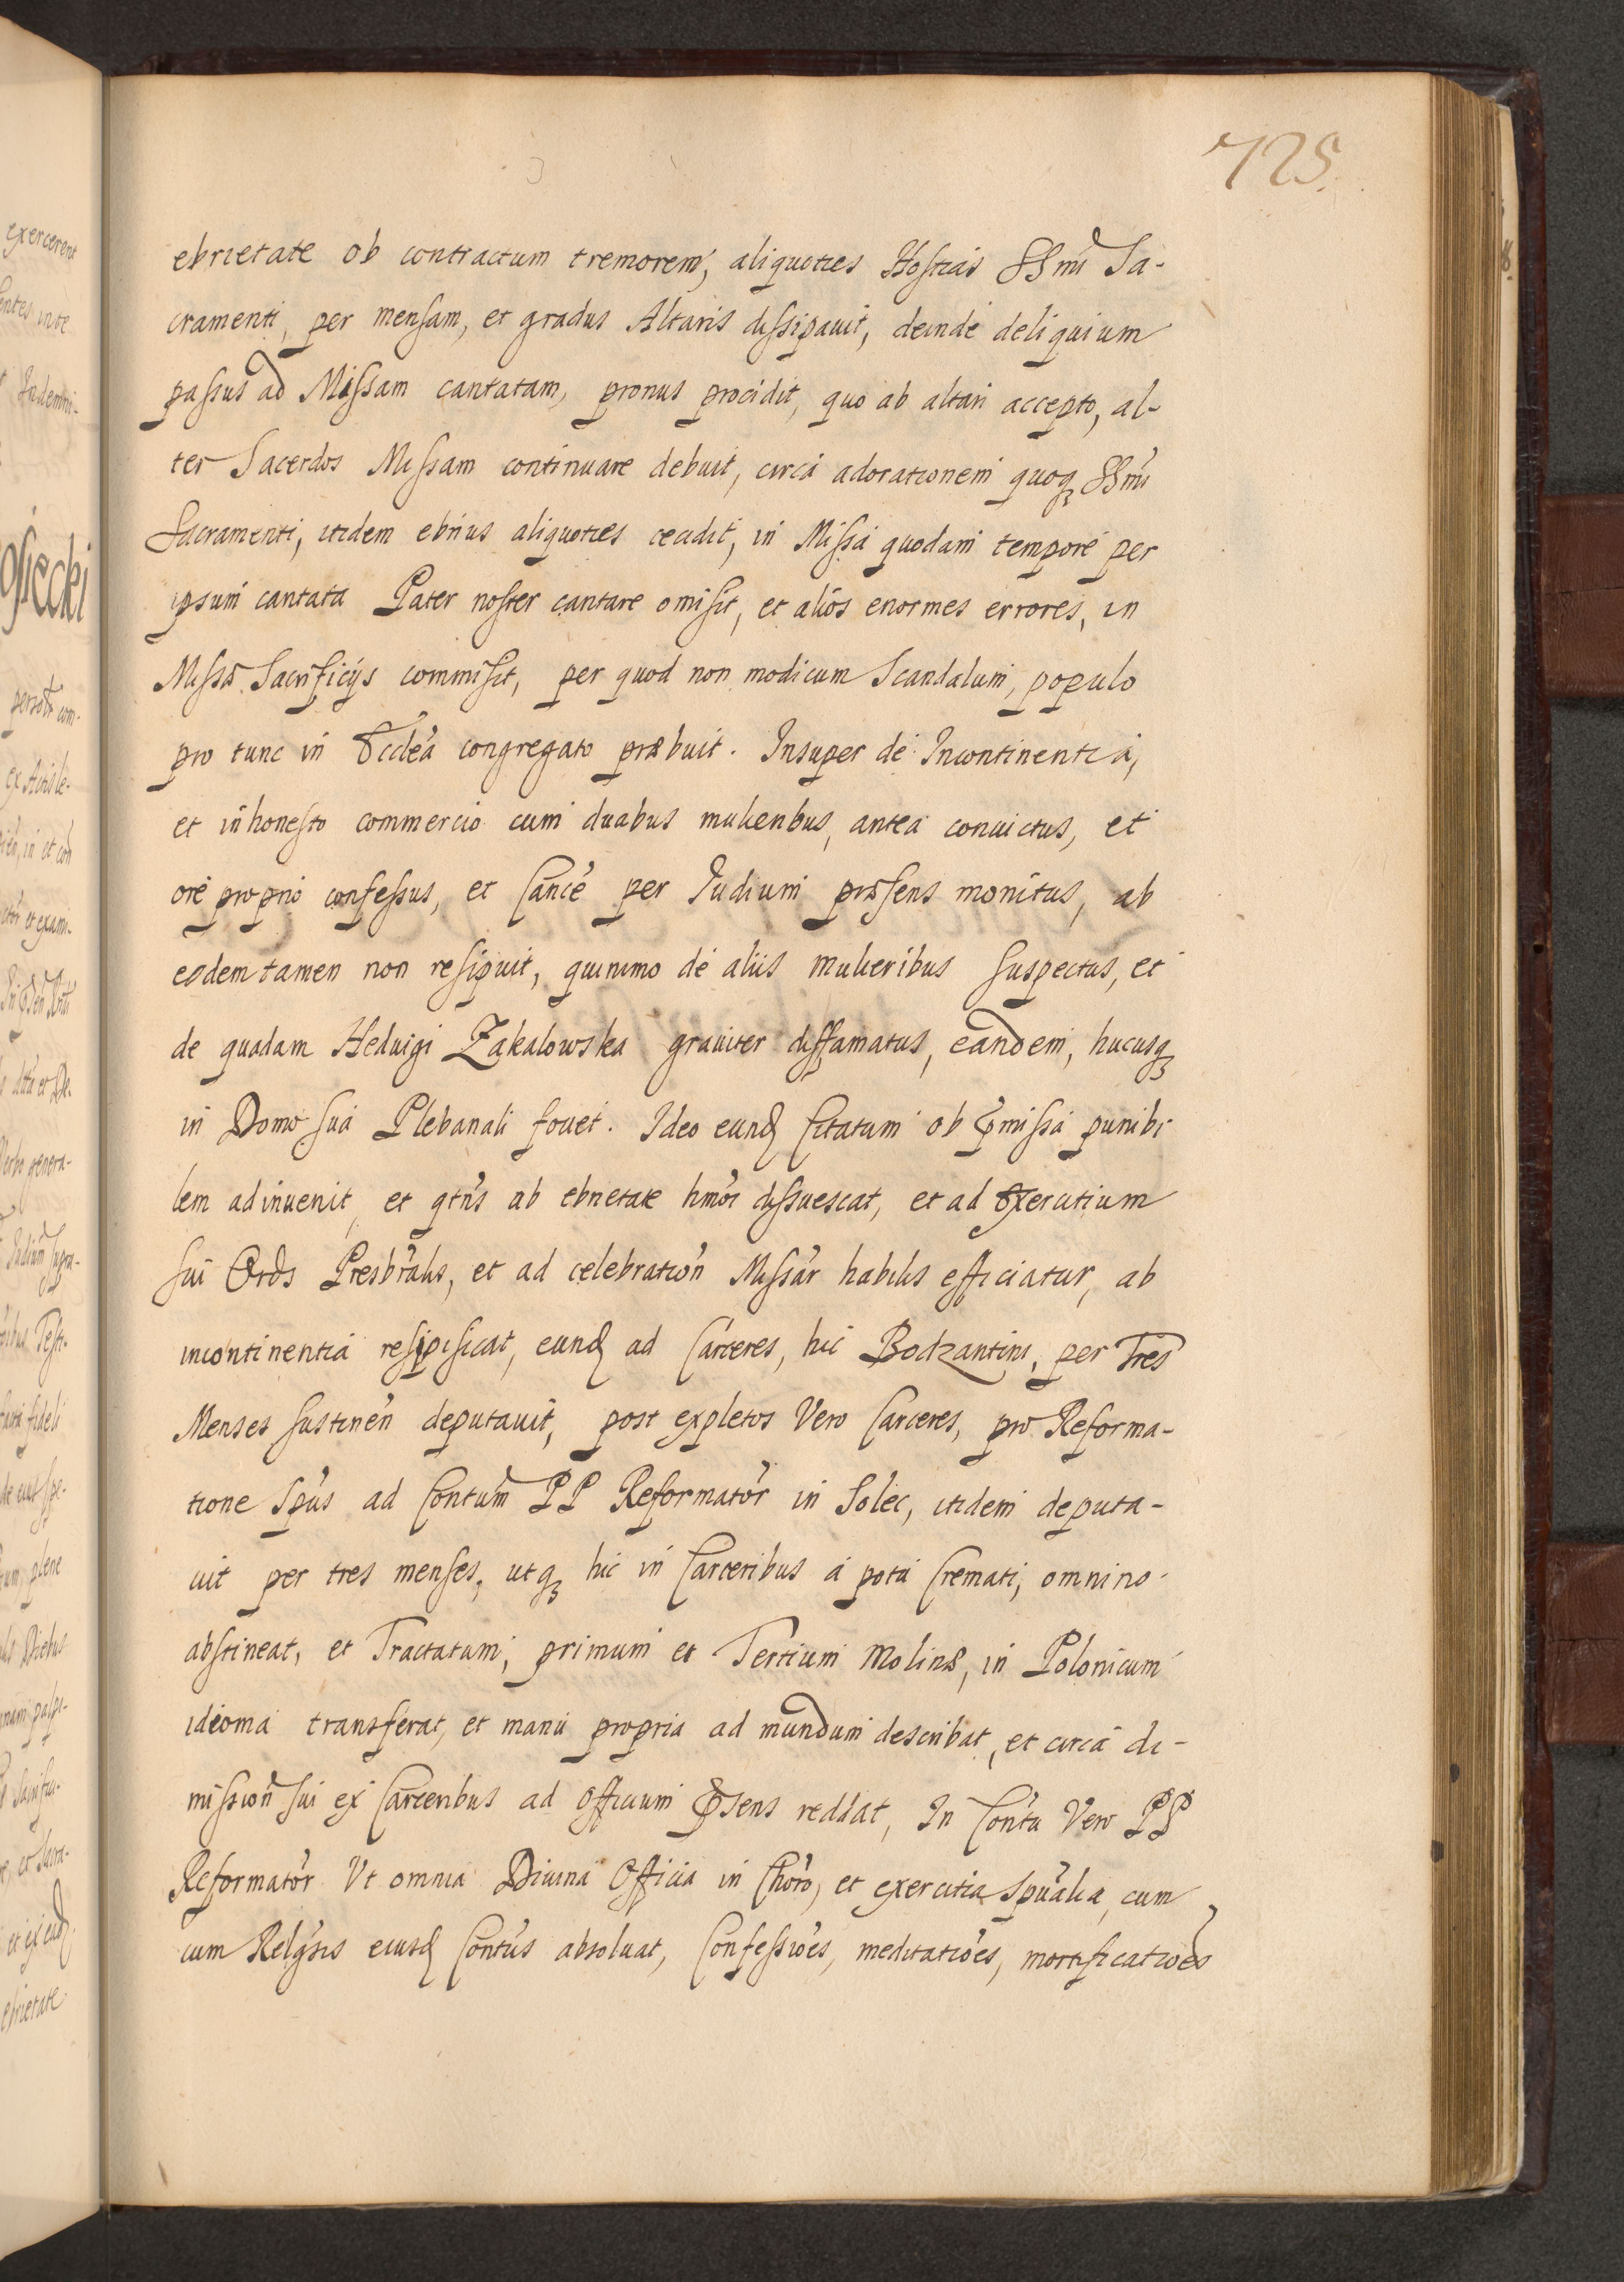 725.
ebrietate ob contractum tremorem, aliquoties Hostias SSmi Sa-
cramenti, per mensam, et gradus Altaris dissipauit, deinde deliquium
passus ad Missam cantatam, pronus procidit, quo ab altari accepto, al-
ter Sacerdos Missam continuare debuit, circa adorationem quoq3 SSmi
Sacramenti, itidem ebrius aliquoties cecidit, in Missa quodam tempore per
ipsum cantata Pater noster cantare omisit, et alios enormes errores, in
Missæ Sacrificijs commisit, per quod non modicum Scandalum, populo
pro tunc in Eccleã congregato præbuit. Insuper de Incontinentia,
et inhonesto commercio cum duabus mulieribus, antea conuictus, et
ore proprio confessus, et Sancè per Iudium præsens monitus, ab
eodem tamen non resipuit, quinimo de aliis mulieribus suspectus, et
de quadam Heduigi Zakalowska grauiter diffamatus, eandem, hucusq3
in Domo sua Plebanali fouet. Ideo eund citatum ob pmissa punibi
lem adinuenit, et qtńs ab ebrietate hmoi dissuescat, et ad Exercitium
sui Ords Presbrális, et ad celebratioń Missar habilis efficiatur, ab
incontinentia resipisicat, eund ad Carceres, hic Bodzantini, per Tres
Menses sustineń deputauit, post expletos Vero Carceres, pro Reforma-
tione Spũs ad Contum PP Reformator in Solec, itidem deputa-
uit per tres menses, utq3 hic in Carceribus a potu Cremati, omnino
abstineat, et Tractatum, primum et Tertium Molinæ, in Polonicum
idioma transferat, et manu propria ad mundum describat, et circa di-
missioń sui ex Carceribus ad Officium Psens reddat, In Contu Vero PP
Reformator Vt omnia Diuina Officia in Choro, et exercitia spũalia, cum
cum Relgsis eiusd Contũs absoluat, Confessioes, meditatioes, mortificatioes